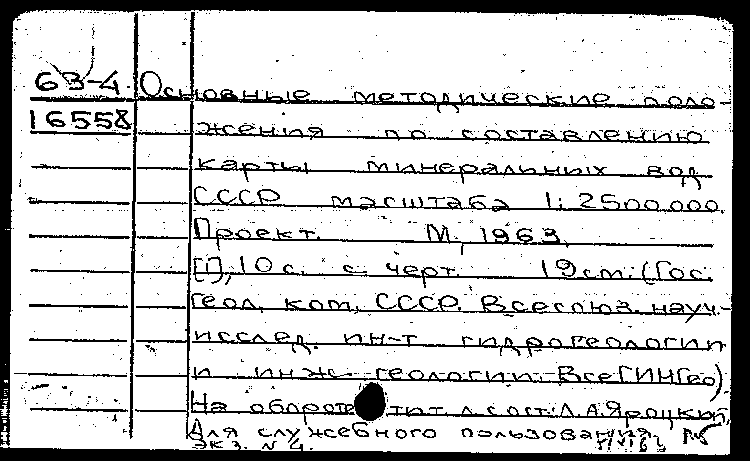 63-4. Основные методические поло-
16558 жения по составлению
карты минеральных вод
СССР масштаба 1:2500.000.
Проект. М, 1963.
[1], 10 с. с черт. 19 см. (Гос.
геол. ком. СССР. Всесоюз. науч.-
исслед. ин-т гидрогеологии
и инж. геологии. ВсеГИНГео)
На обороте тит. л. сост: Л.А.Яроцкий.
Для служебного пользования.
Экз. N 4.